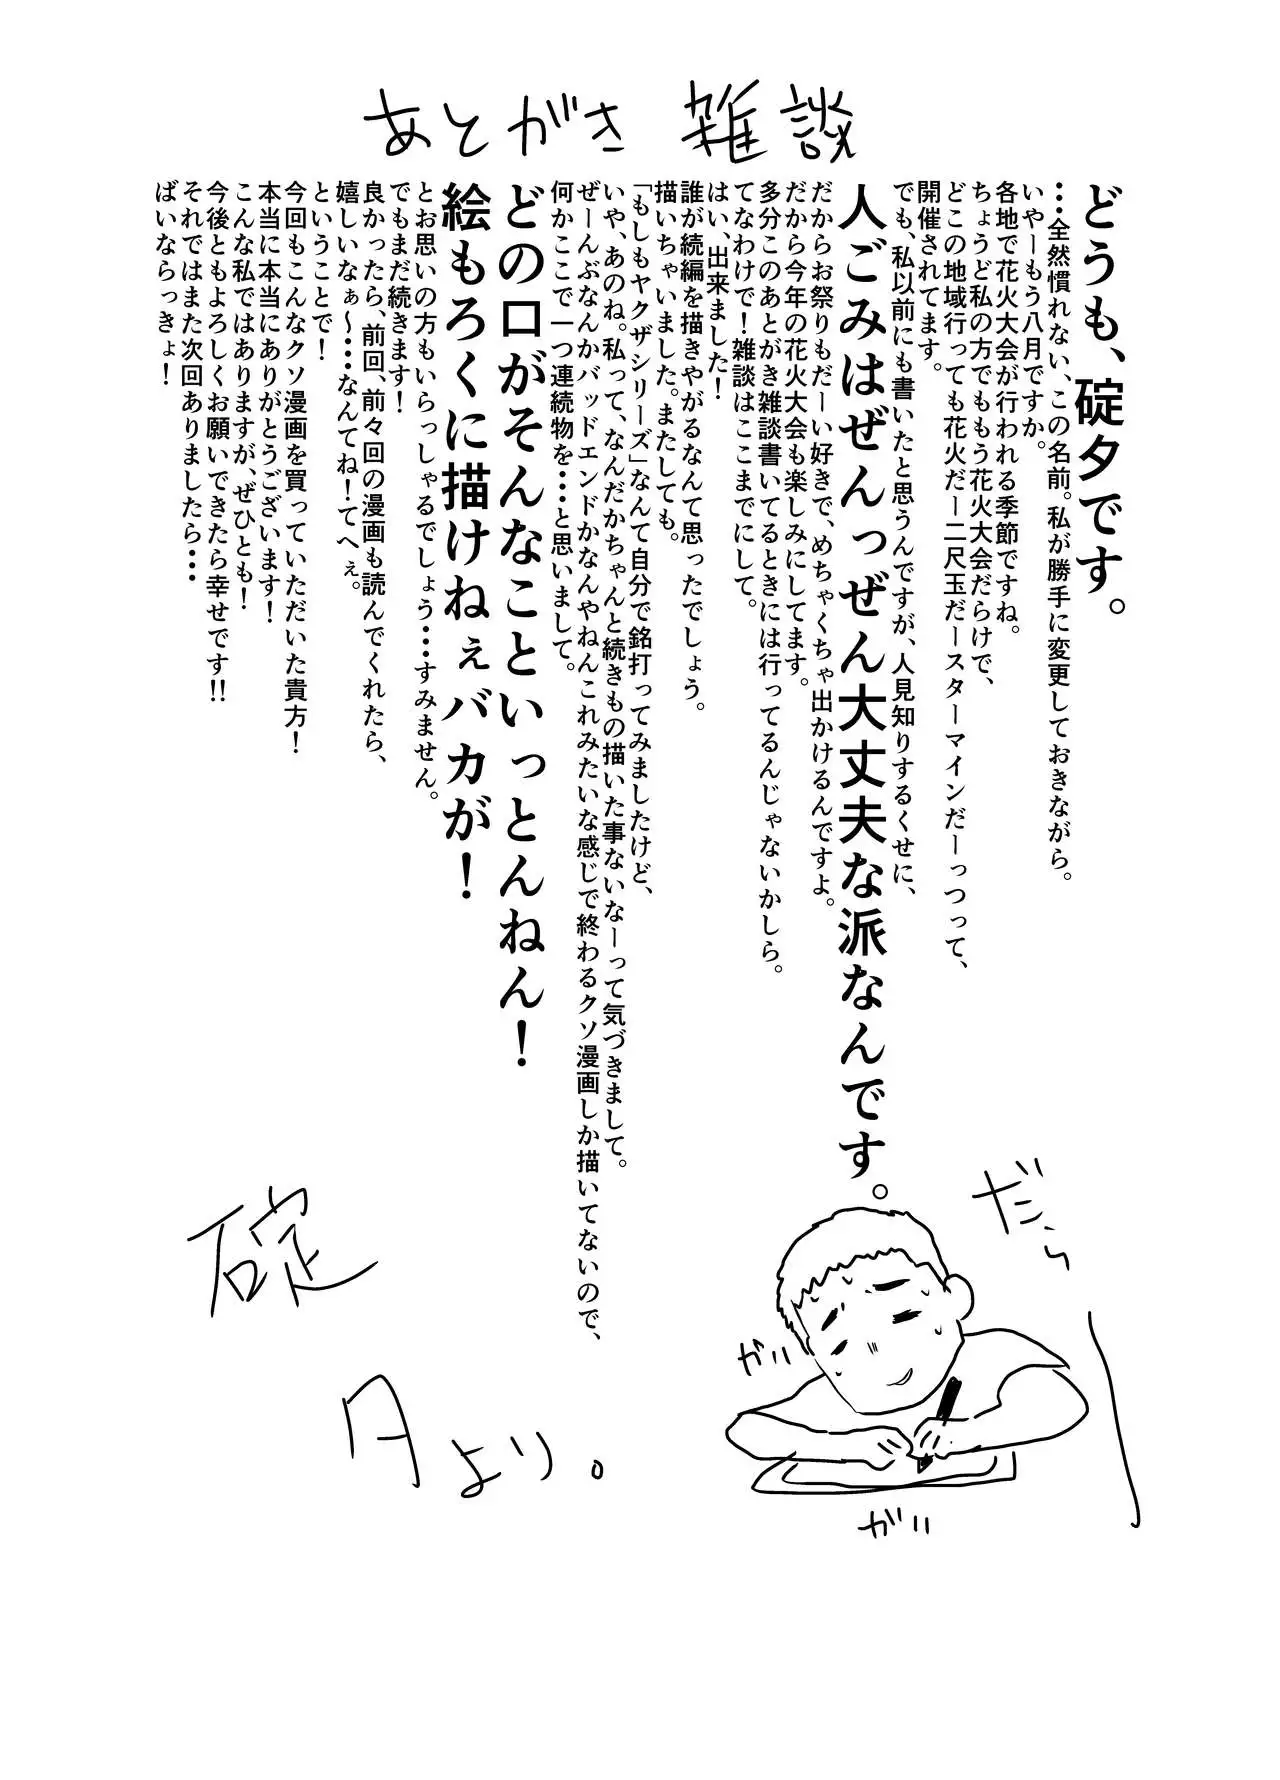 あとがき 雑談
どうも、碇夕です。
…全然慣れない、この名前。私が勝手に変更しておきながら。
いやーもう八月ですか。
各地で花火大会が行われる季節ですね。
ちょうど私の方でももう花火大会だらけで、
どこの地域行っても花火だー二尺玉だースターマインだーっつって、
開催されてます。
でも、私以前にも書いたと思うんですが、人見知りするくせに、
人ごみはぜんっぜん大丈夫な派なんです。
だからお祭りもだーい好きで、めちゃくちゃ出かけるんですよ。
だから今年の花火大会も楽しみにしてます。
多分このあとがき雑談書いてるときには行ってるんじゃないかしら。
てなわけで！雑談はここまでにして。
はい、出来ました！
誰が続編を描きやがるなんて思ったでしょう。
描いちゃいました。またしても。
「もしもヤクザシリーズ」なんて自分で銘打ってみましたけど、
いや、あのね。私って、なんだかちゃんと続きもの描いた事ないなーって気づきまして。
ぜーんぶなんかバッドエンドかなんやねんこれみたいな感じで終わるクソ漫画しか描いてないので、
何かここで一つ連続物を…と思いまして。
どの口がそんなこといっとんねん！
絵もろくに描けねぇバカが！
とお思いの方もいらっしゃるでしょう…すみません。
でもまだ続きます！
良かったら、前回、前々回の漫画も読んでくれたら、
嬉しいなぁ～…なんてね！てへぇ。
ということで！
今回もこんなクソ漫画を買っていただいた貴方！
本当に本当にありがとうございます！
こんな私ではありますが、ぜひとも！
今後ともよろしくお願いできたら幸せです!!
それではまた次回ありましたら…
ばいならっきょ！
だら
ガリ
ガリ
碇
夕より。